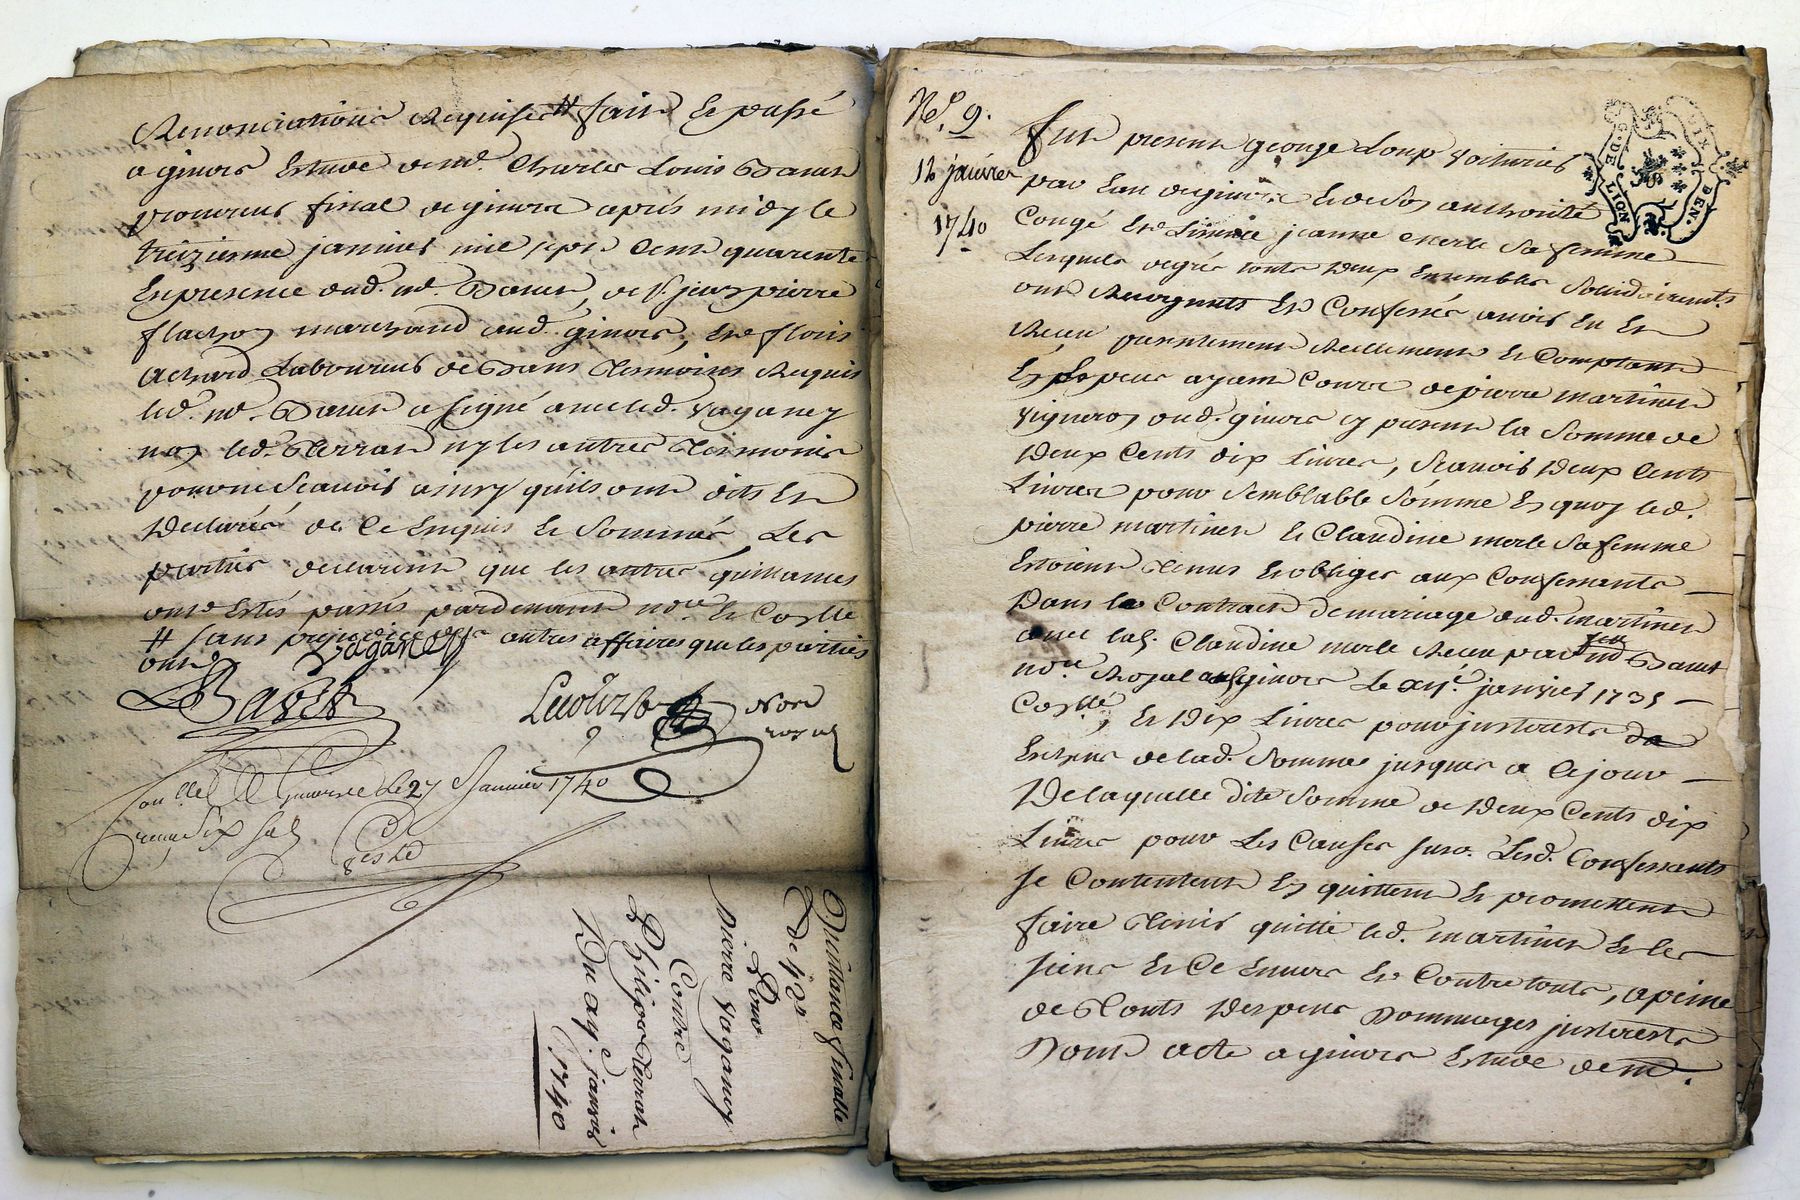 Renonciations Requises # fait et passé
a givors Estude de mᵉ. Charles Louis Bauet
procureur fiscal de givors aprés midy le
treizieme janvier mil sept cent quarente
En presence dud. mᵉ. Bauet, de sʳ. jean pierre
flachon marchand aud. givors, Et
Achard Laboureur de Bans tesmoins Requis
led. mᵉ. Bauet a signé avec led. vaganey
non led. terrat ny les autres tesmoins
pour ne scavoir ainsy quils ont dits Et
declarés de ce Enquis Et sommés Les
parties declarent que les autres quittances
ont Estés passés pardevant noʳᵉ Et Coslle
# sans prejudice des autres affaires que les parties
ont
vaganey
Bavet
Lecourt Noʳᵉ
royal
Conllé a givors le 27 Janvier 1740
receu six sols
Quittance finalle
De 42ˡ
Pour
Pierre vaganey
Contre
Philipe terrat
Du xiijᵉ. janvier
1740
Nº. 9.
12 janvier
1740
G. DE LION
fut present george Loup voiturier
par Eau de givors Et de son authorité
Congé Et Licence jeanne merle sa femme
Lesquels de gré touts deux Ensembles Solidairemt.
ont Recognuts Et Confessés avoir Eu Et
Receu presentement Reellement Et Comptant
En Especes ayant Cours de pierre martinet
vigneron aud. givors cy present la somme de
Deux Cents dix Livres, scavoir deux Cents
Livres pour semblable somme En quoy led.
pierre martinet Et Claudine merle sa femme
Estoient tenus Et obliges aux Confessants
Dans le Contract de mariage dud. martinet
avec lad. Claudine merle Receu par mᵉ Bauet
noʳᵉ Royal a givors Le janvier 1735
Coslle, Et dix Livres pour interests
de lad. somme jusques a ce jour
De laquelle dite somme de Deux Cents dix
Livres pour Les Causes susd. Lesd. Confessants
se Contentent En quittent Et promettent
faire tenir quitte led. martinet Et les
siens Et Ce Envers Et Contre touts, a peine
de touts Despens Dommages interests
Dont acte a givors Estude de mᵉ.